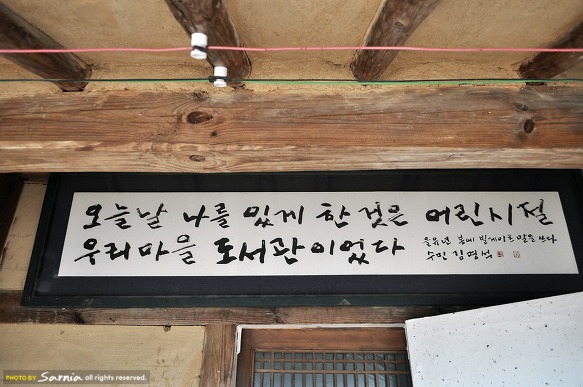 오늘날 나를 있게 한 것은 어린시절
우리마을 도서관이었다
을유년 봄에 빌게이트 말을 쓰다
수민 김명석
PHOTO BY Sarnia all rights reserved.